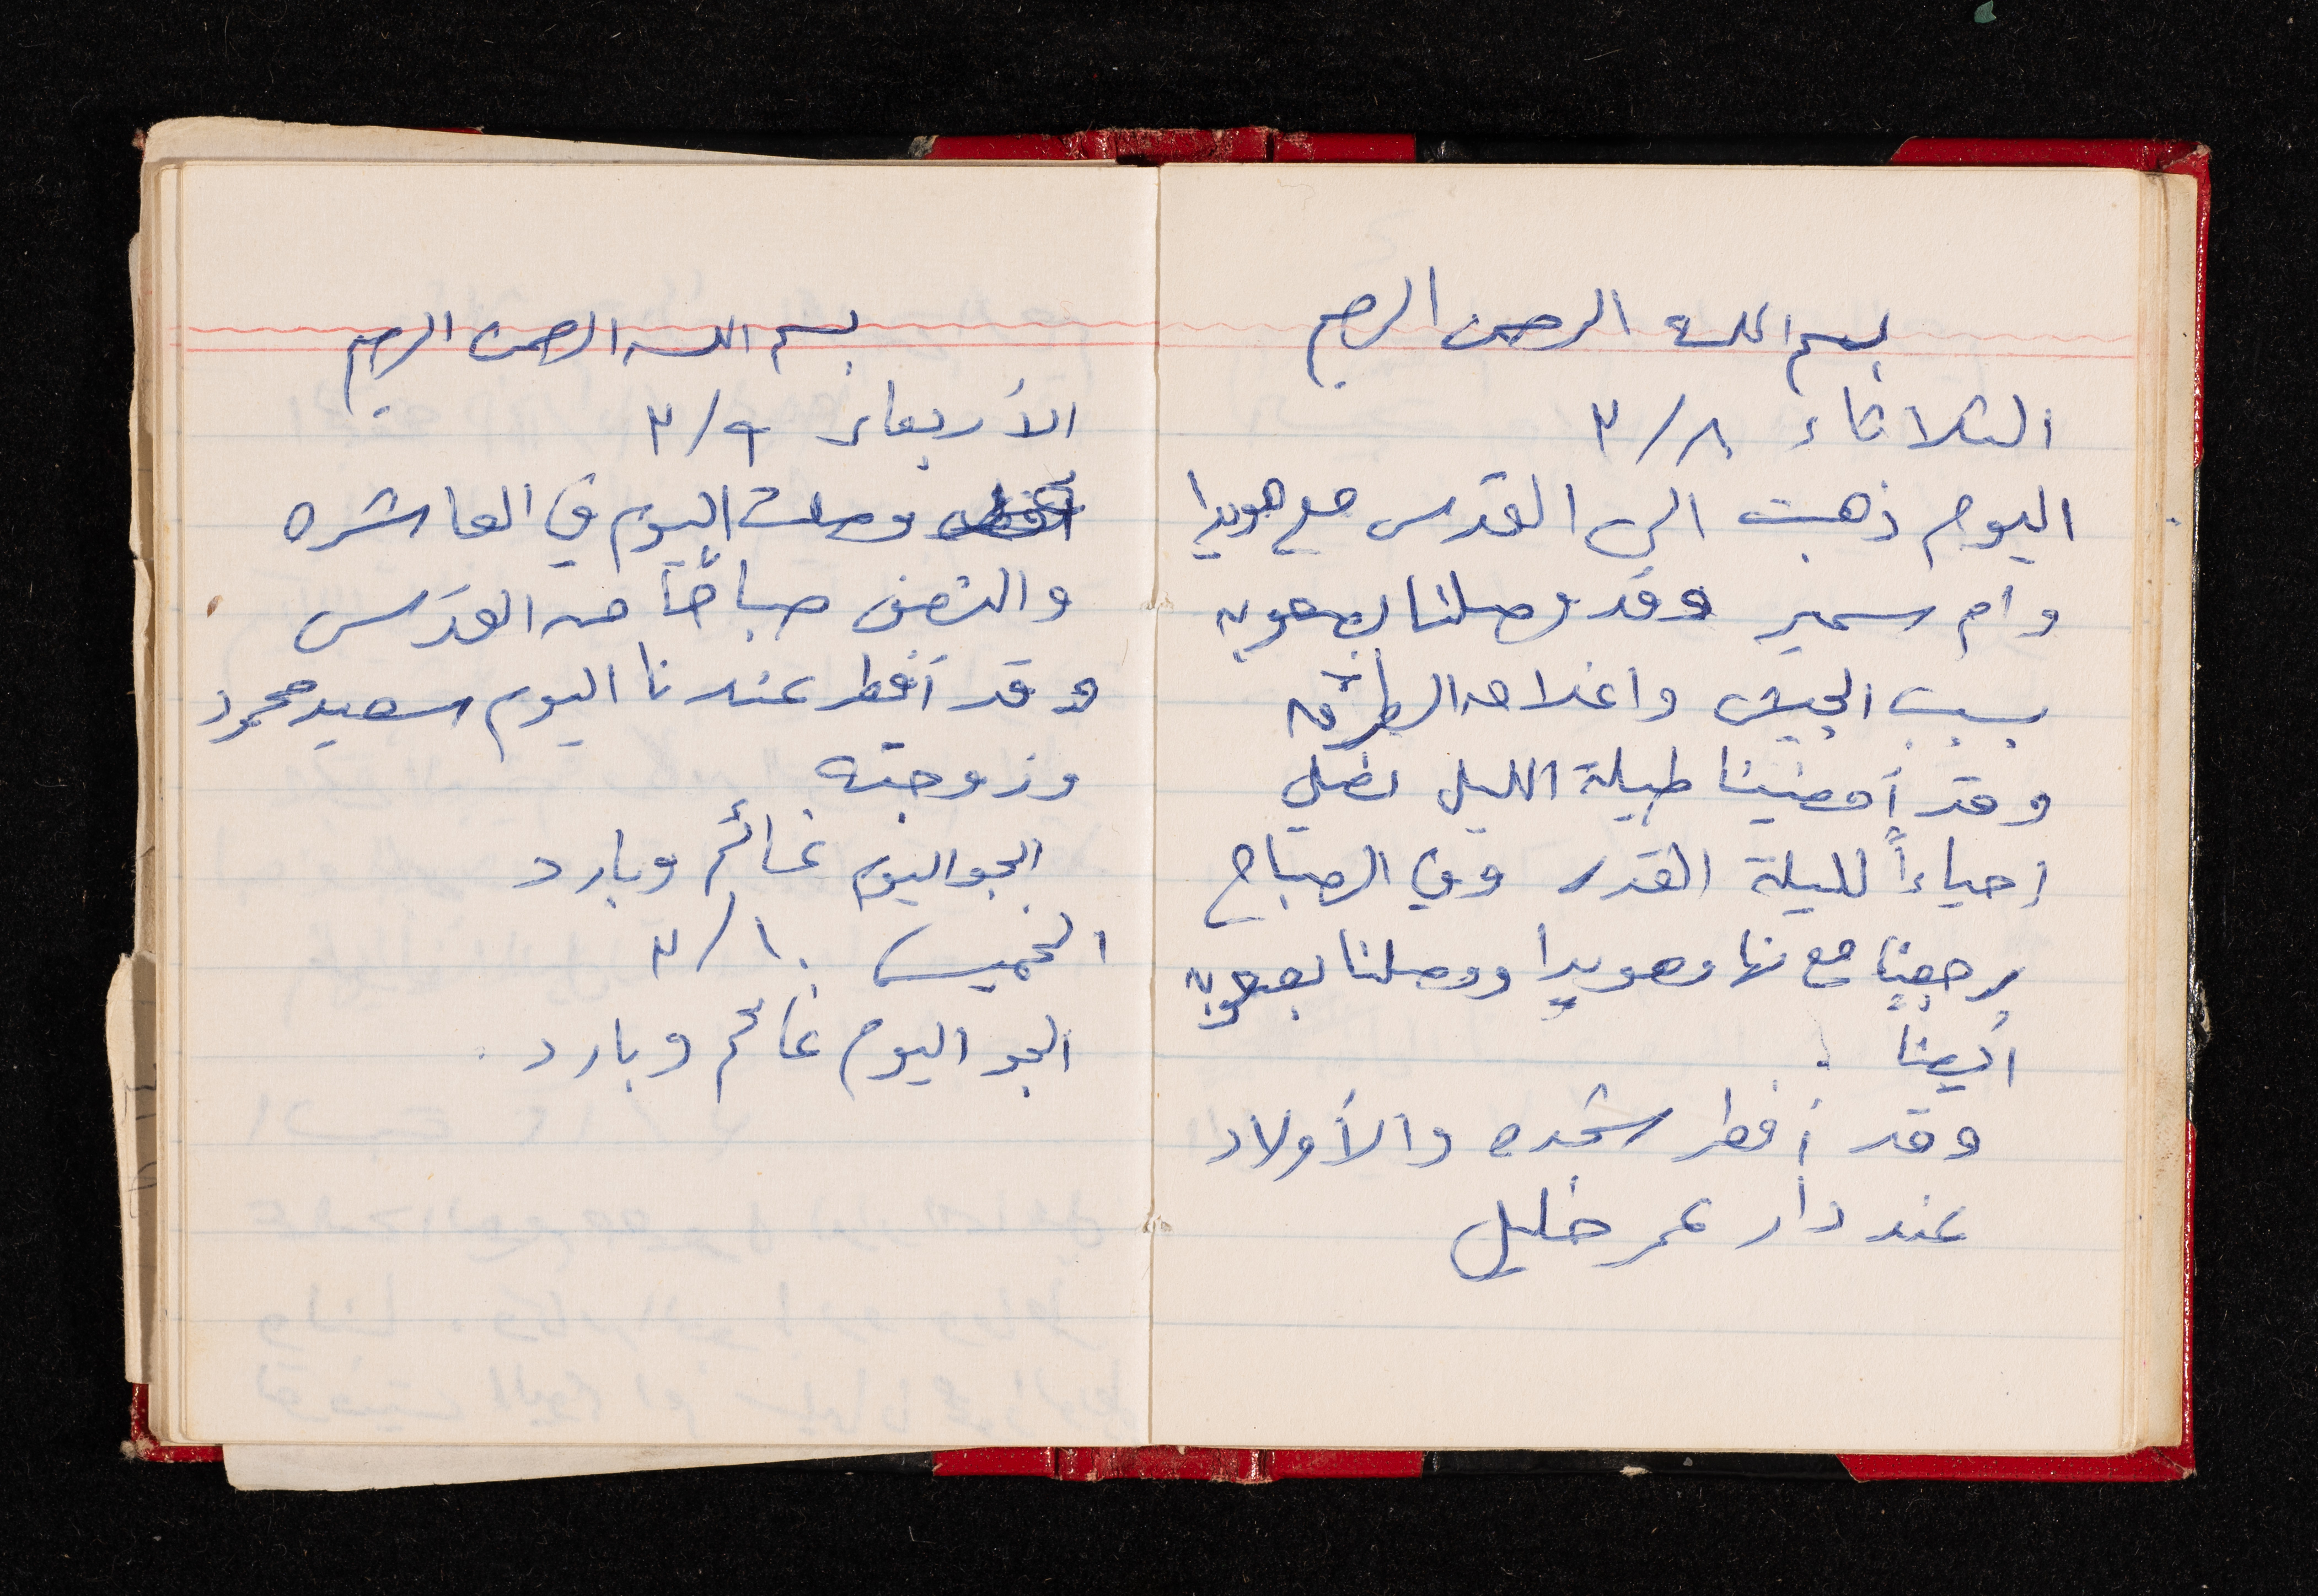 بسم الله الرحمن الرحيم
الثلاثاء ٣/٨
اليوم ذهبت الى القدس مع هويدا
وام سمير وقد وصلنا بصعوبه
بسبب الجيش واغلاق الطرق
وقد أمضينا طيلة الليل نصلي
إحياءاً لليلة القدر وفي الصباح
رجعنا مع نهاد وهويدا ووصلنا بصعوبه
أيضاً .
وقد أفطر شحده والأولاد
عند دار عمر خليل
بسم الله الرحمن الرحيم
الأربعاء ٣/٩
وصلت اليوم في العاشره
والنصف صباحاً من القدس
وقد أفطر عندنا اليوم سعيد محمود
وزوجته
الجو اليوم غائم وبارد
الخميس ٣/١٠
الجو اليوم غائم وبارد .